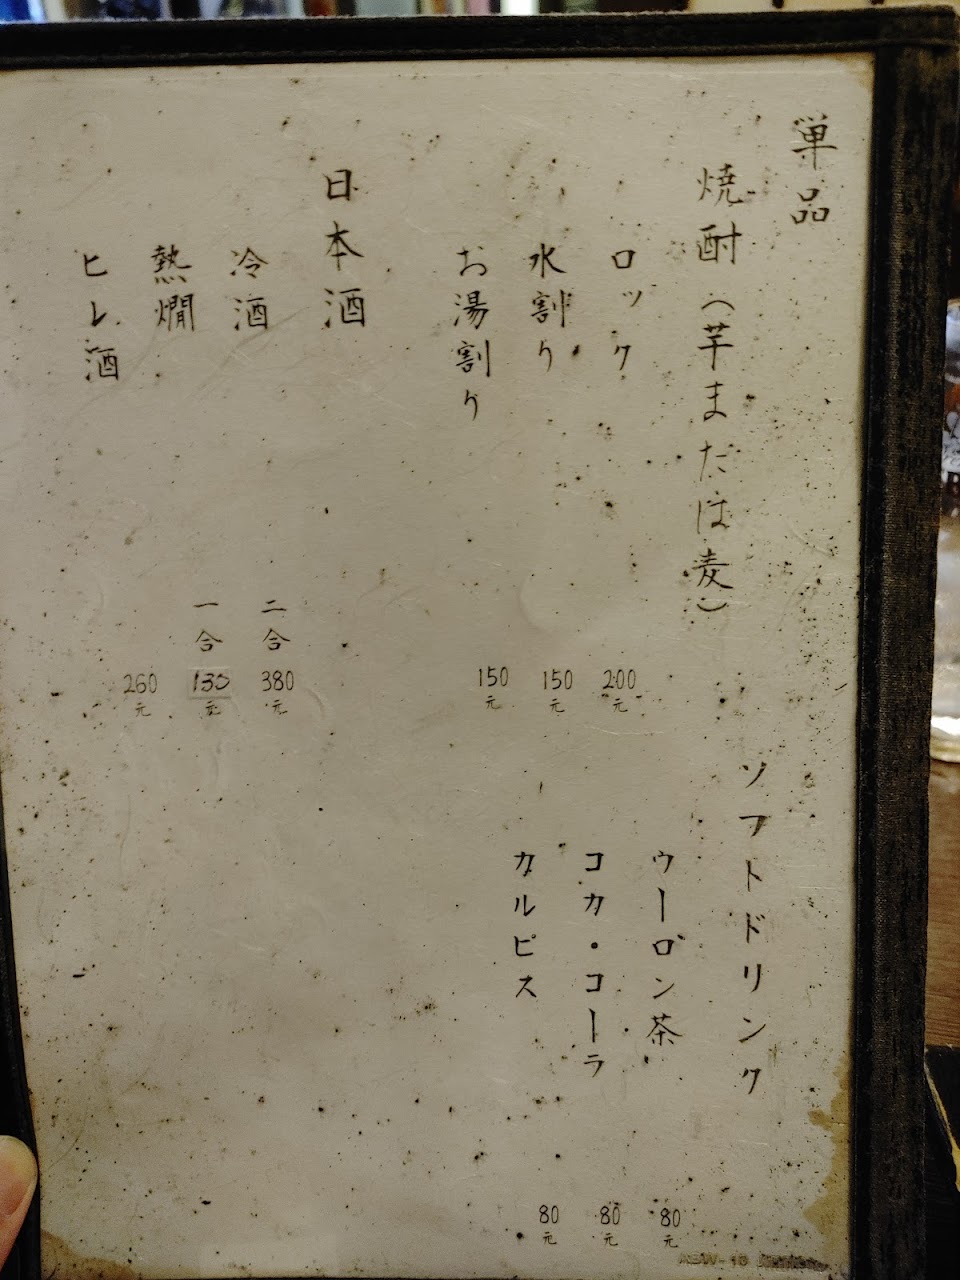 単品
焼酎（芋または麦）
ロック 200元
水割り 150元
お湯割り 150元
日本酒
冷酒 二合 380元
熱燗 一合 130元
ヒレ酒 260元
ソフトドリンク
ウーロン茶 80元
コカ・コーラ 80元
カルピス 80元